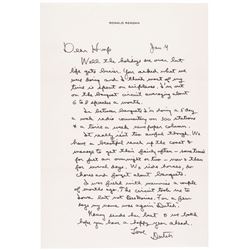 RONALD REAGAN
Dear Hup Jan 4
Well the holidays are over but
life gets busier. You asked what we
was doing and I think most of my
time is spent on airplanes. I'm out
on the banquet circuit averaging about
6 to 8 speeches a month.
In between banquets I'm doing a 5 day
a week radio commentary on 300 stations
& a twice a week newspaper column.
It really isn't too awful though. We
have a beautiful ranch up the coast &
manage to get there fairly often - sometimes
for just an overnight or two - now & then
for several days. We ride horses, do
chores and forget about banquets.
I was filled with memories a couple
of months ago. The circuit took me to
Iowa but not Des Moines. For a few
days you were again Dutch.
Nancy sends her best & we both
hope you have a happy year ahead.
Love
Dutch